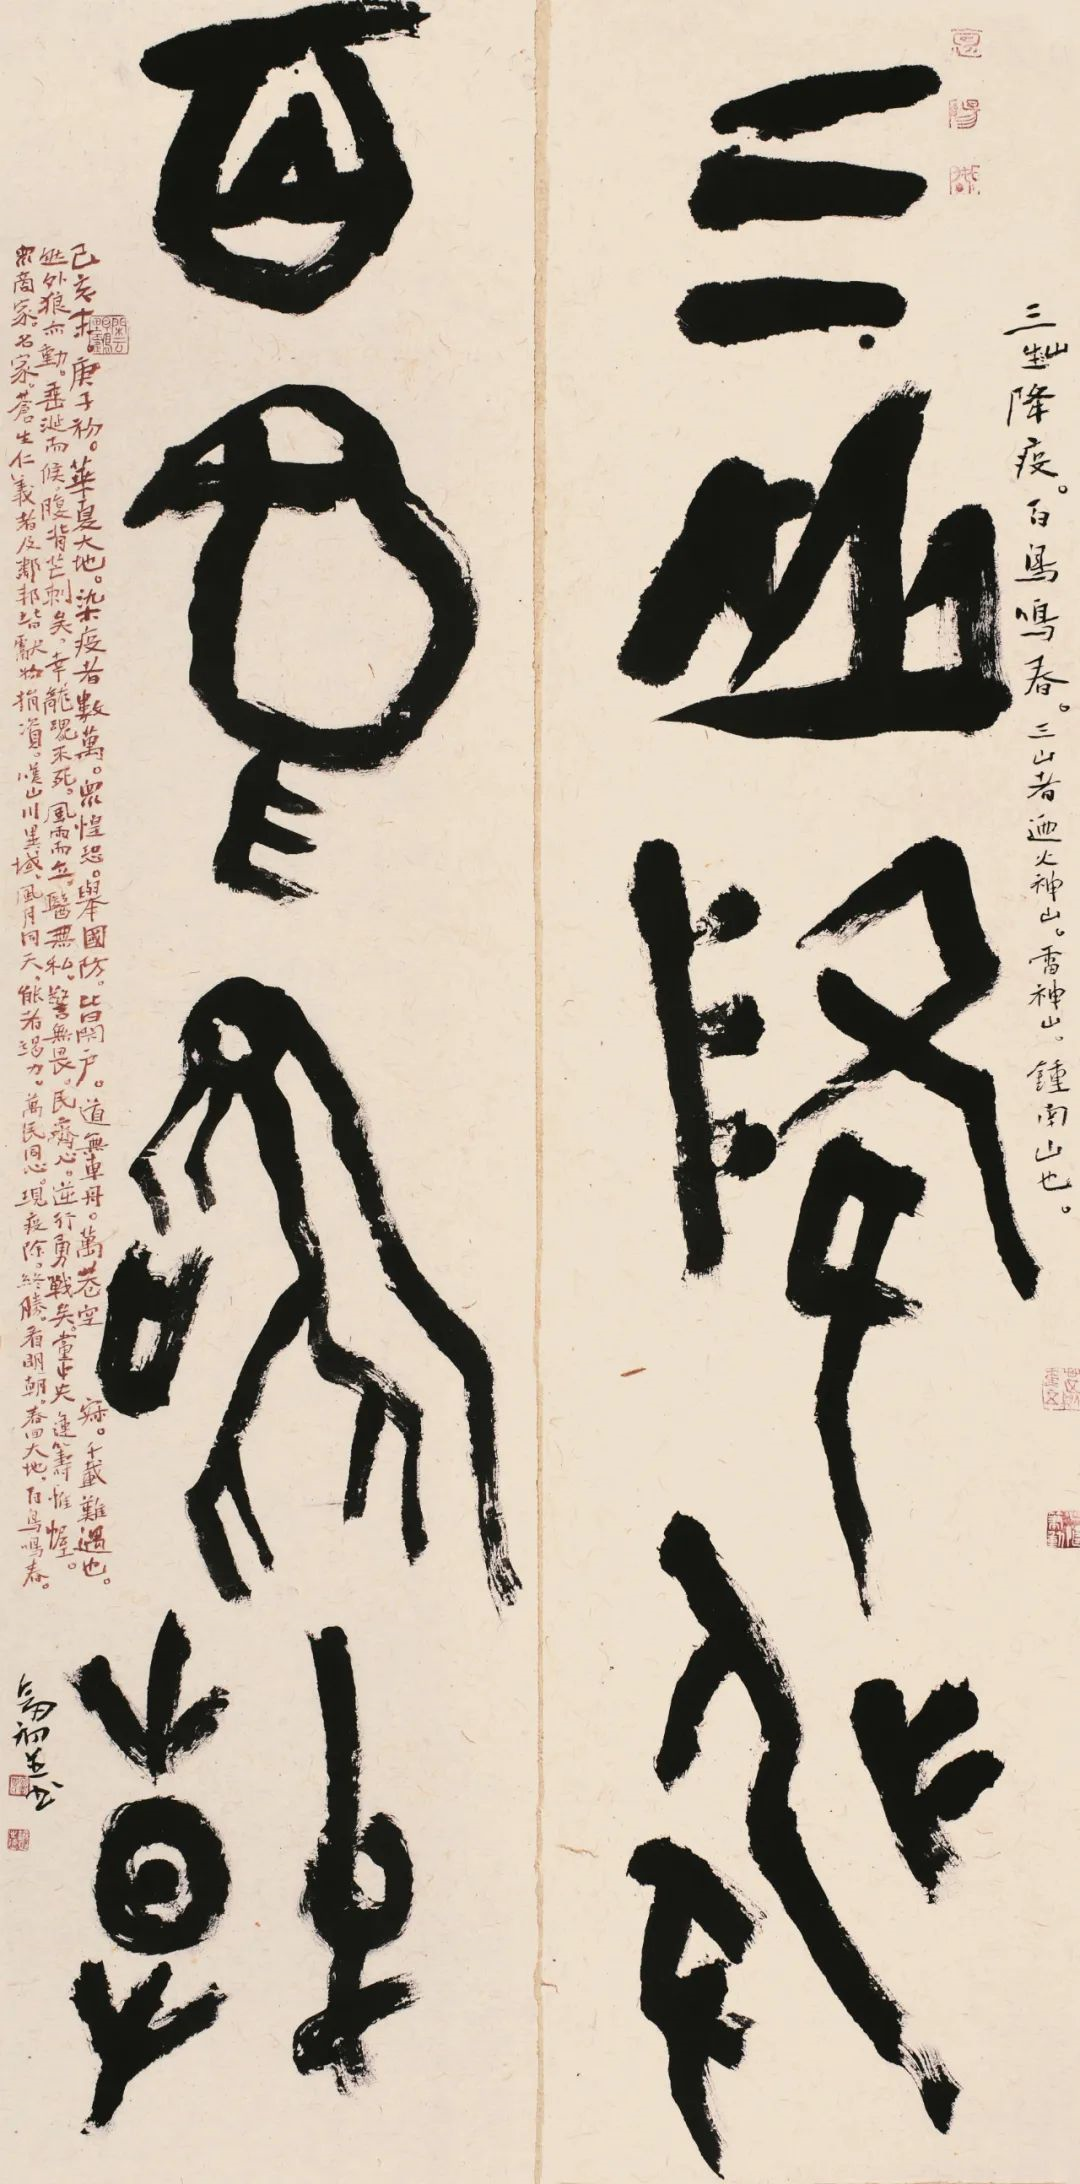 三山降疫
百鳥鳴春
三山降疫。百鳥鳴春。三山者迺火神山。雷神山。鍾南山也。
己亥末。庚子初。華夏大地。染疫者數萬。眾惶恐。舉國防。皆閉户。道無車舟。萬巷空寂。千載難遇也。
外狼亦動。垂涎而候。腹背芒刺矣。幸龍魂不死。風雨而立。醫無私。警無畏。民齊心。逆行勇戰矣。黨中央運籌帷幄。
眾商家。名家。蒼生仁義者及鄰邦皆獻物捐資。嘆山川異域。風月同天。能者竭力。萬民同心。現疫除。終勝。看明朝。春回大地。百鳥鳴春。